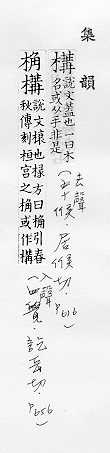 集韻
構說文蓋也一曰木
名或从手非是
(去聲
五十候·居候切·P616
桷構說文榱也椽方曰桷引春
秋傳刻桓宮之桷或作構
(入聲
四覺·訖岳切·P656